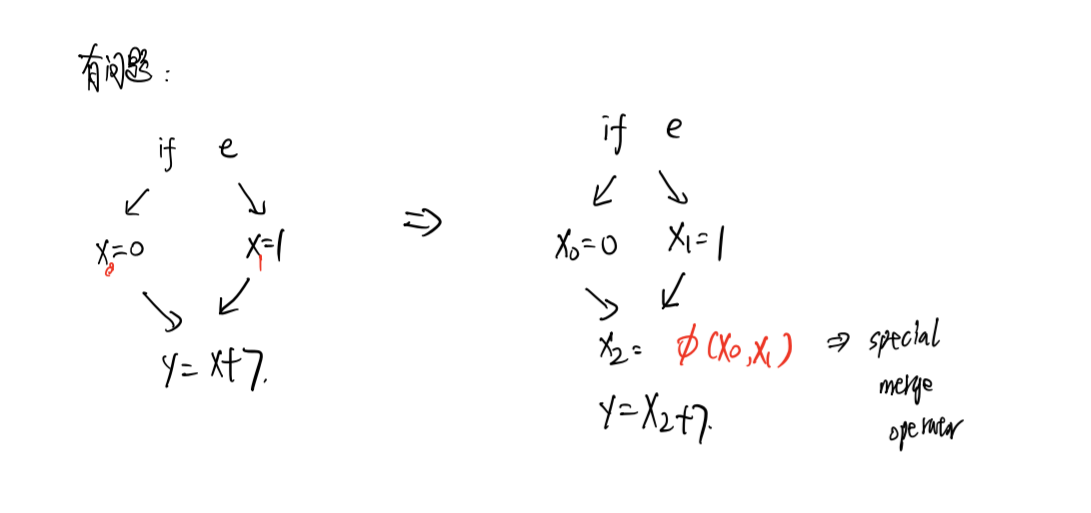 有问题:
if e
x₀=0 x₁=1
y = x+7.
⇒
if e
x₀=0 x₁=1
x₂= ϕ(x₀,x₁) ⇒ special
merge
operator
y=x₂+7.